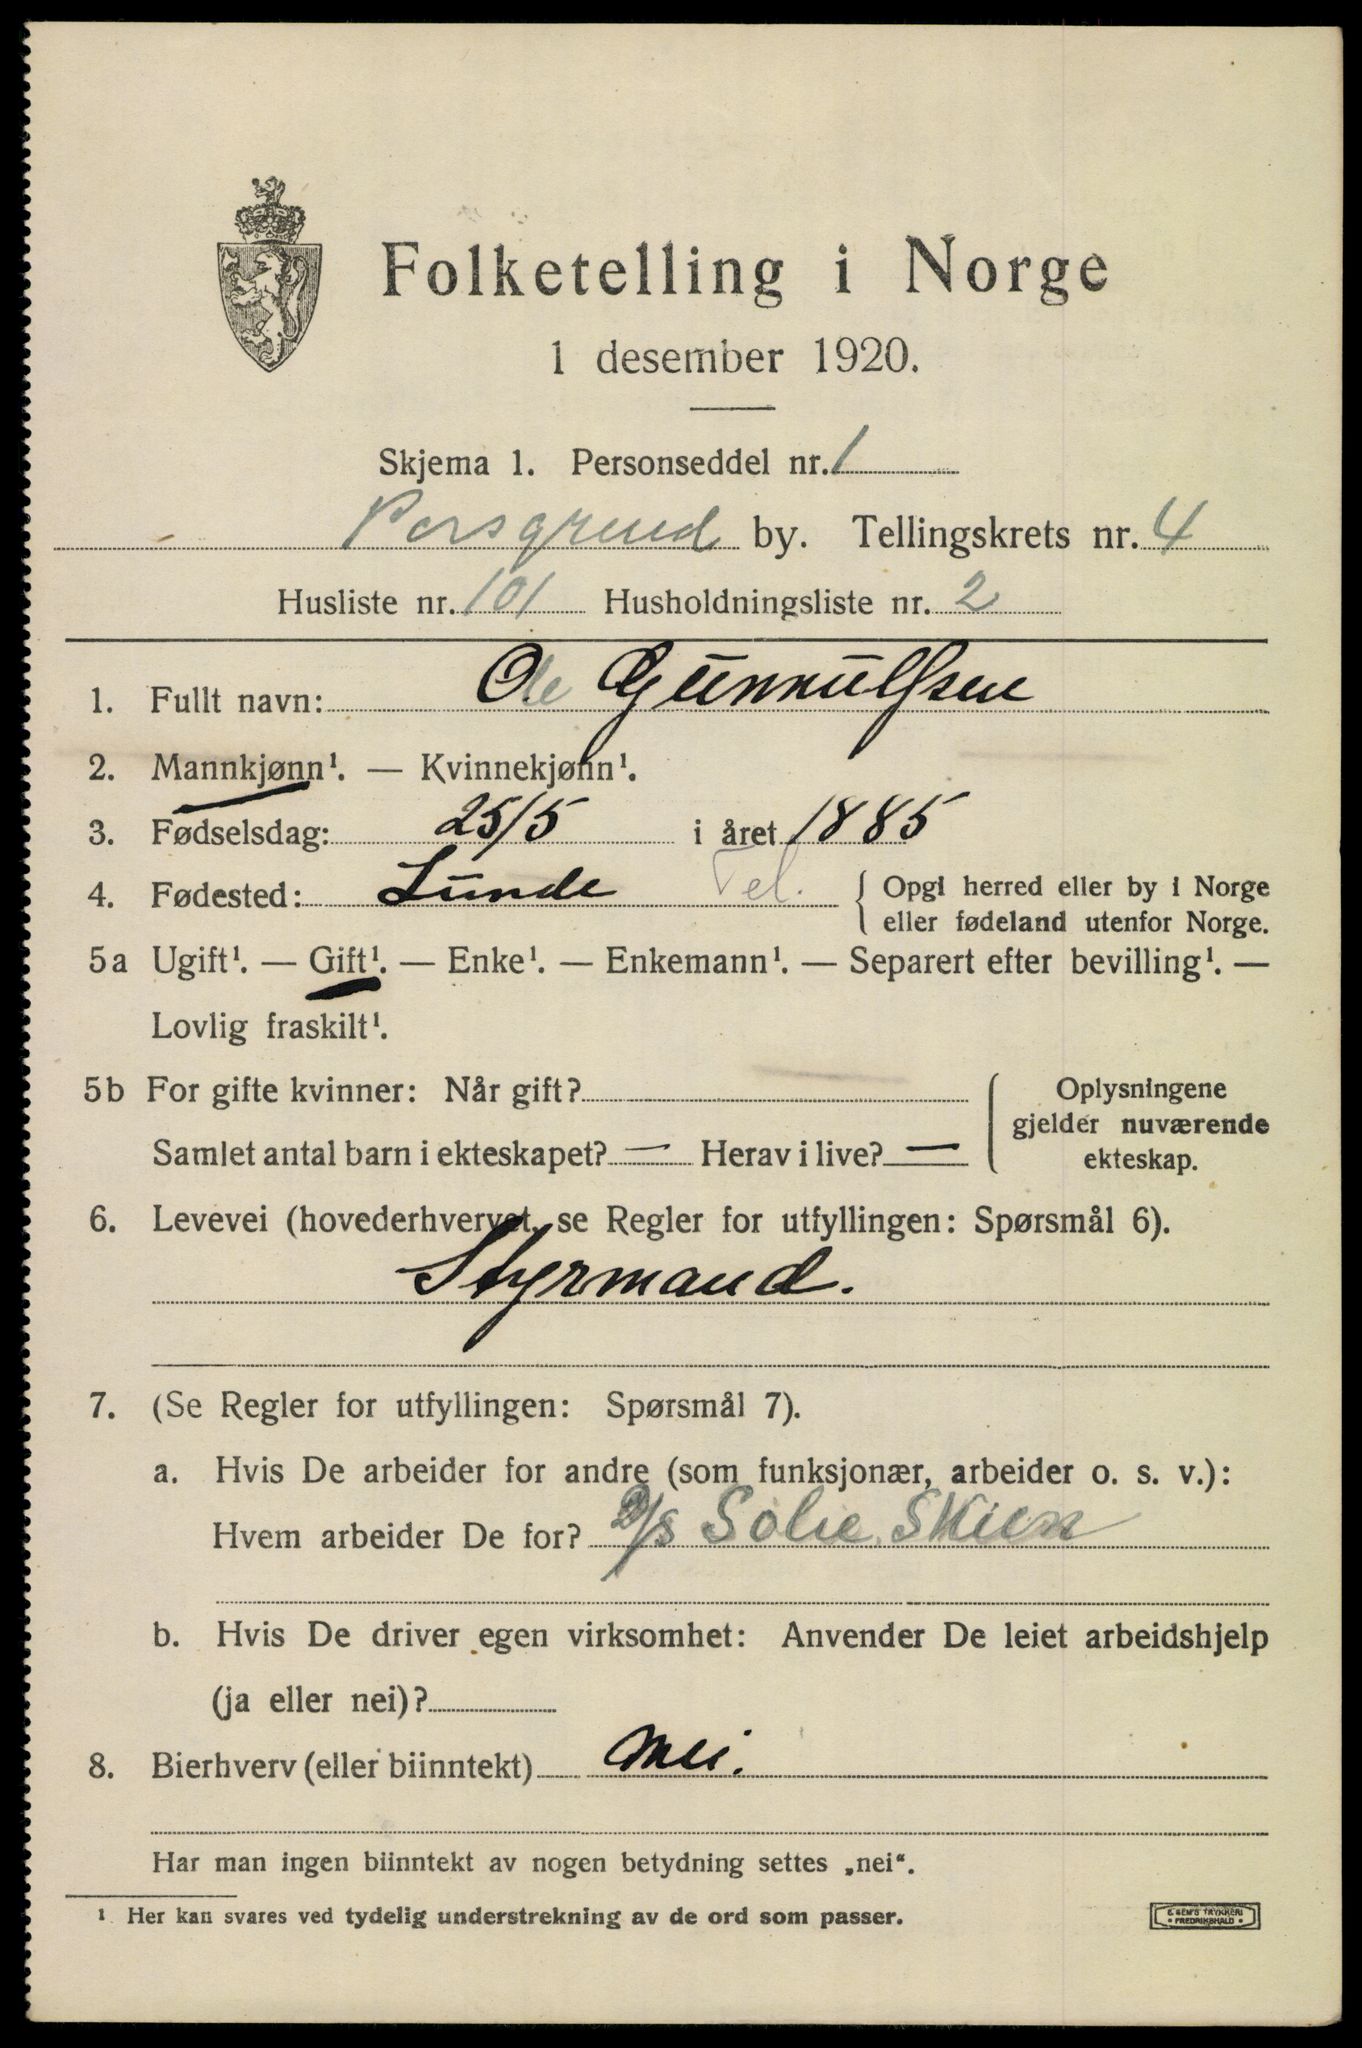 Folketelling i Norge
1 desember 1920.
Skjema 1. Personseddel nr. 1
Porsgrund by. Tellingskrets nr. 4
Husliste nr. 101 Husholdningsliste nr. 2
1. Fullt navn: Ole Gunnulfsen
2. Mannkjønn¹. — Kvinnekjønn¹.
3. Fødselsdag: 25/5 i året 1885
4. Fødested: Lunde Tel. { Opgi herred eller by i Norge
eller fødeland utenfor Norge.
5a Ugift¹. — Gift¹. — Enke¹. — Enkemann¹. — Separert efter bevilling¹. —
Lovlig fraskilt¹.
5b For gifte kvinner: Når gift? { Oplysningene
gjelder nuværende
Samlet antal barn i ekteskapet? — Herav i live? — ekteskap.
6. Levevei (hovederhvervet, se Regler for utfyllingen: Spørsmål 6).
Styrmand.
7. (Se Regler for utfyllingen: Spørsmål 7).
a. Hvis De arbeider for andre (som funksjonær, arbeider o. s. v.):
Hvem arbeider De for? D/S Solie, Skien
b. Hvis De driver egen virksomhet: Anvender De leiet arbeidshjelp
(ja eller nei)?
8. Bierhverv (eller biinntekt) nei.
Har man ingen biinntekt av nogen betydning settes „nei“.
¹ Her kan svares ved tydelig understrekning av de ord som passer.
E. SEM'S TRYKKERI
FREDRIKSHALD